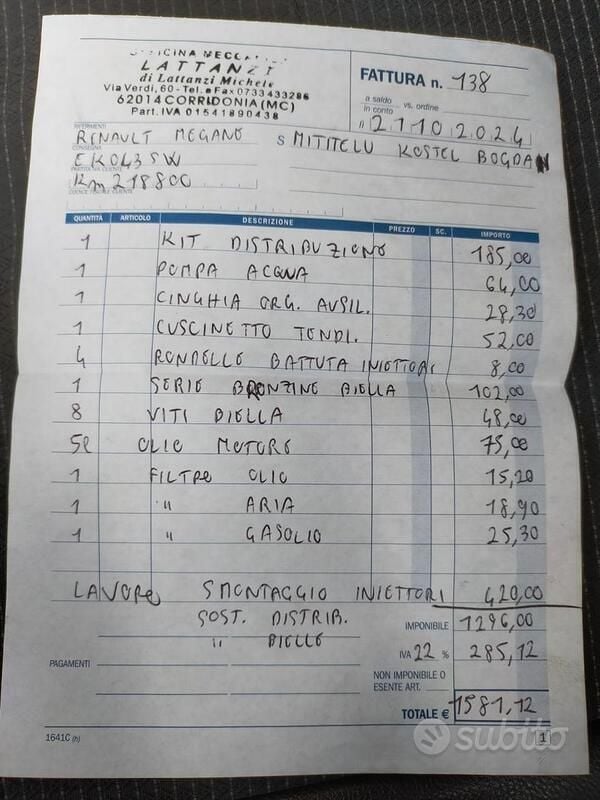 OFFICINA MECCANICA
LATTANZI
di Lattanzi Michele
Via Verdi, 60 - Tel. e Fax 0733433286
62014 CORRIDONIA (MC)
Part. IVA 01541890438
FATTURA n. 138
a saldo vs. ordine
in conto
21102024
RIFERIMENTI
RENAULT MEGANE
S MITITELU KOSTEL BOGDAN
CONSEGNA
EK043SW
PARTITA IVA CLIENTE
Km 218800
CODICE FISCALE CLIENTE
QUANTITÀ ARTICOLO DESCRIZIONE PREZZO SC. IMPORTO
1 KIT DISTRIBUZIONE 185,00
1 POMPA ACQUA 64,00
1 CINGHIA ORG. AUSIL. 28,30
1 CUSCINETTO TENDI. 52,00
4 RONDELLE BATTUTA INIETTORI 8,00
1 SERIE BRONZINE BIELLA 102,00
8 VITI BIELLA 48,00
5l OLIO MOTORE 75,00
1 FILTRO OLIO 15,20
1 " ARIA 18,90
1 " GASOLIO 25,30
LAVORO SMONTAGGIO INIETTORI 420,00
SOST. DISTRIB. IMPONIBILE 1296,00
" BIELLE
IVA 22 % 285,12
PAGAMENTI
NON IMPONIBILE O
ESENTE ART.
TOTALE € 1581,12
1641C (h) 1
subito